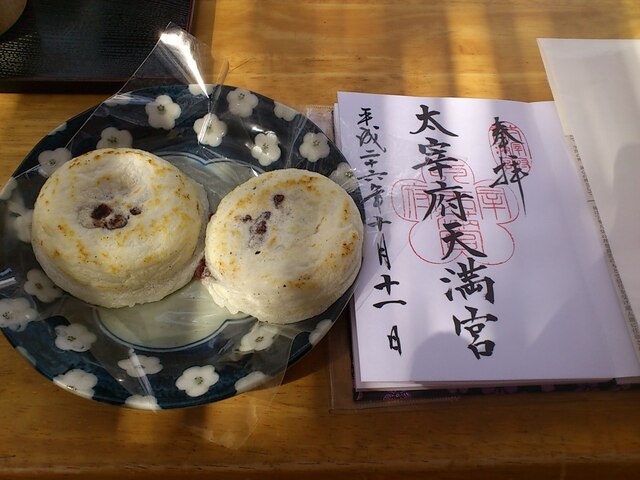 奉拝
太宰府天満宮
平成二十六年十月十一日